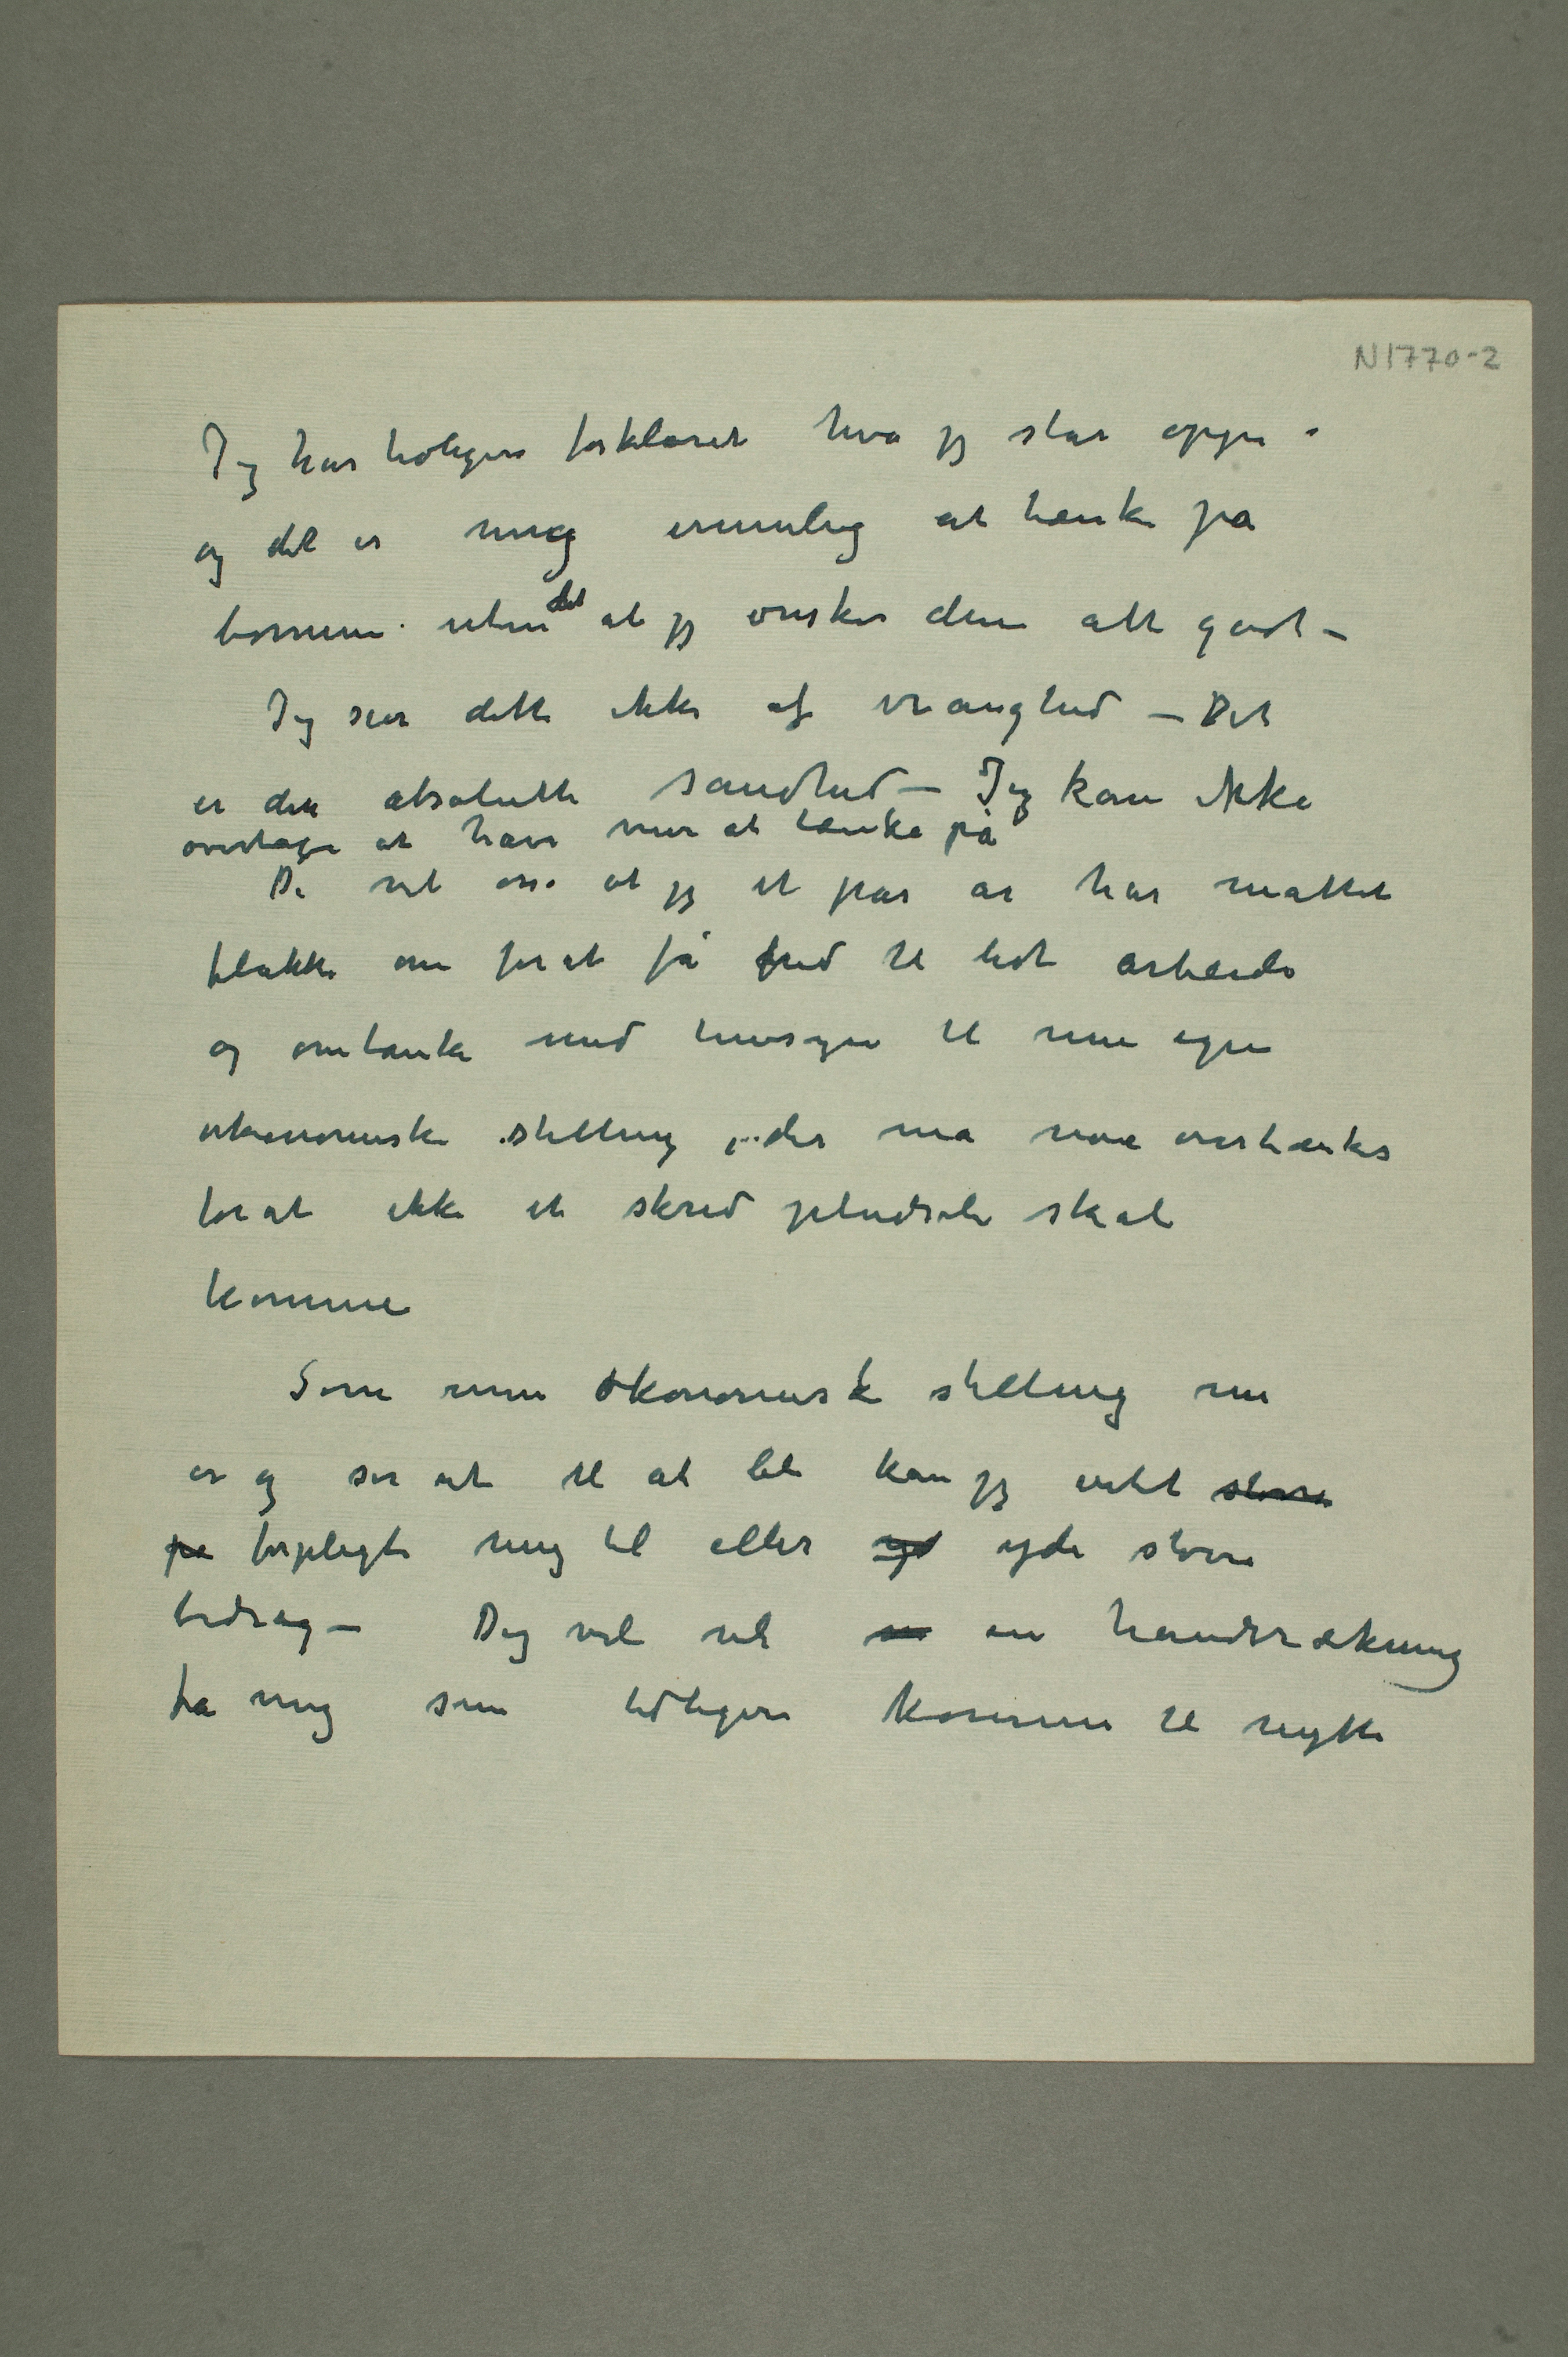 N1770-2
Jeg har tidligere forklaret hva jeg står oppe i
og det er mig umulig at tænke på
børnene uten det at jeg ønsker dem alt godt –
Jeg sier dette ikke af vranghed – Det
er den absolutte sandhed – Jeg kan ikke
overtage at have mer at tænke på
De vet osså at jeg et par år har måttet
flakke om for at få fred til lidt arbeide
og omtanke med hensyn til min egen
økonomiske stilling der må nøie overtænkes
for at ikke et skred pludseli skal
komme
Som min økonomisk stilling nu
er og ser ut til at bli kan jeg intet større
på forpligte mig til eller yd yde større
bidrag – Dog vil vel en håndsrækning
fra mig som tidligere komme til nytte